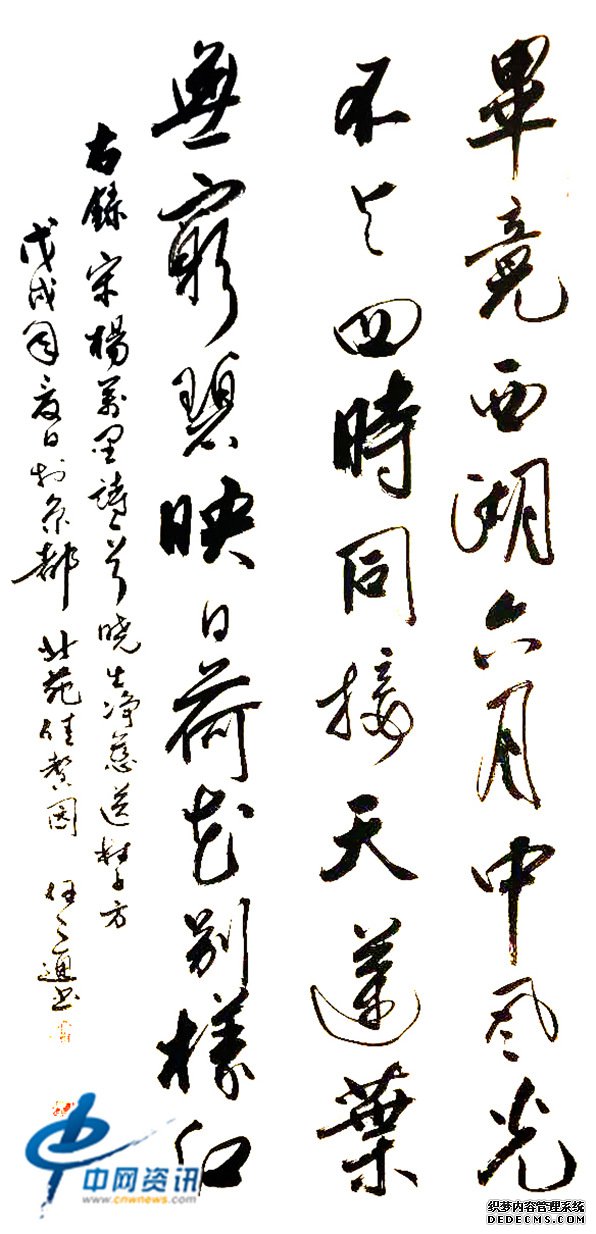 畢竟西湖六月中风光
不与四時同接天蓮葉
無窮碧映日荷花别樣红
右録宋楊萬里詩晓出净慈送林子方
戊戌年夏日於京都北苑佳
中网资讯
www.cnwnews.com
织梦内容管理系统
DEDECMS.COM